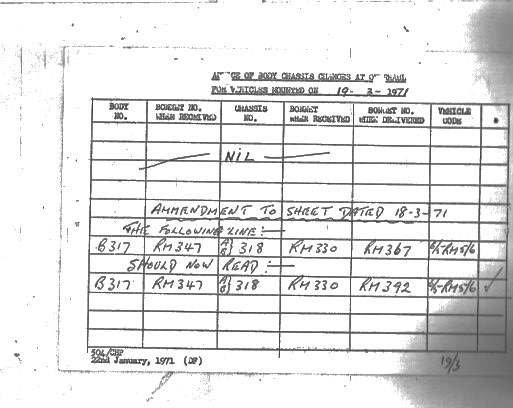 OF BODY CHASSIS CHANGES AT
FOR VEHICLES MOUNTED ON 19-3-1971
BODY NO. BONNET NO. WHEN RECEIVED CHASSIS NO. BONNET WHEN RECEIVED BONNET NO. WHEN DELIVERED VEHICLE CODE *
NIL
AMMENDMENT TO SHEET DATED 18-3-71
THE FOLLOWING LINE:—
B317 RM347 A/B} 318 RM330 RM367 RM5/6
SHOULD NOW READ:—
B317 RM347 A/B} 318 RM330 RM392 RM5/6 ✓
504/CHP
22nd January, 1971 (DP)
19/3